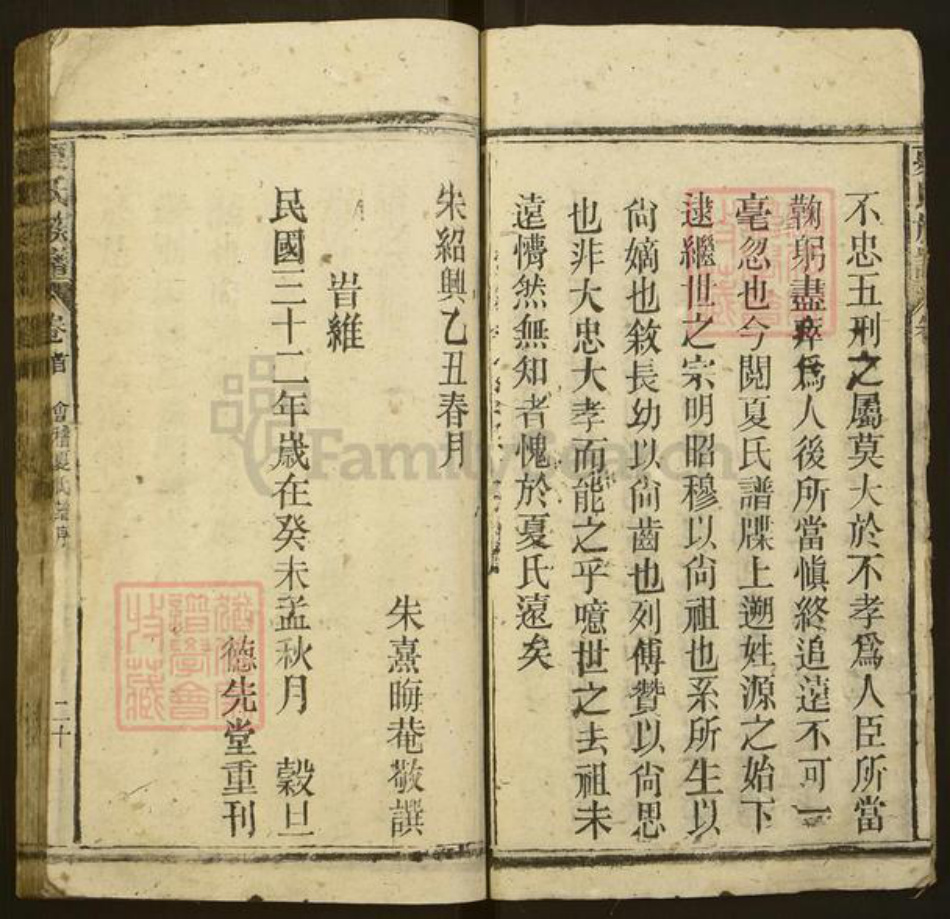 不忠五刑之屬莫大於不孝爲人臣所當
鞠躬盡瘁爲人後所當愼終追遠不可一
毫忽也今閱夏氏譜牒上遡姓源之始下
逮繼世之宗明昭穆以尙祖也系所生以
尙嫡也敘長幼以尙齒也列傳贊以尙思
也非大忠大孝而能之乎噫世之去祖未
遠懵然無知者愧於夏氏遠矣
朱紹興乙丑春月
朱熹晦菴敬譔
旹維
民國三十二年歲在癸未孟秋月 穀旦
德先堂重刊
夏氏族譜 卷首 會稽夏氏譜序 二十
FamilySearch